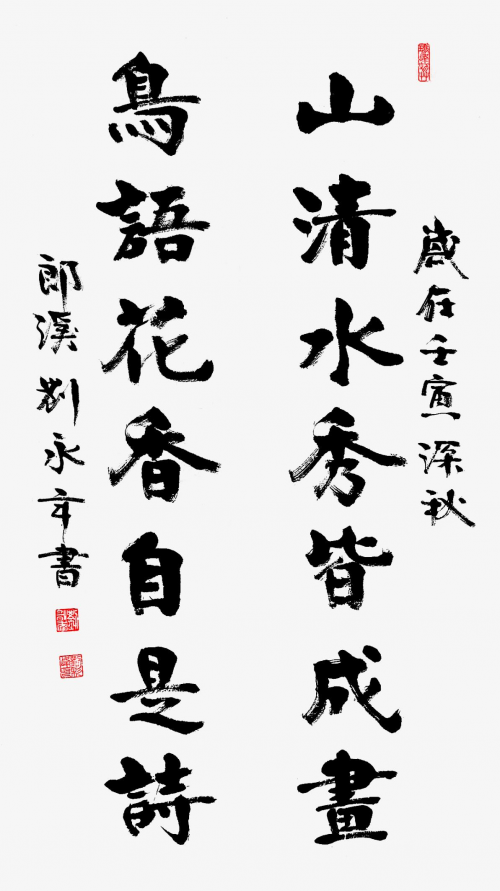 歲在壬寅深秋
山清水秀皆成畫
鳥語花香自是詩
郎溪劉永年書